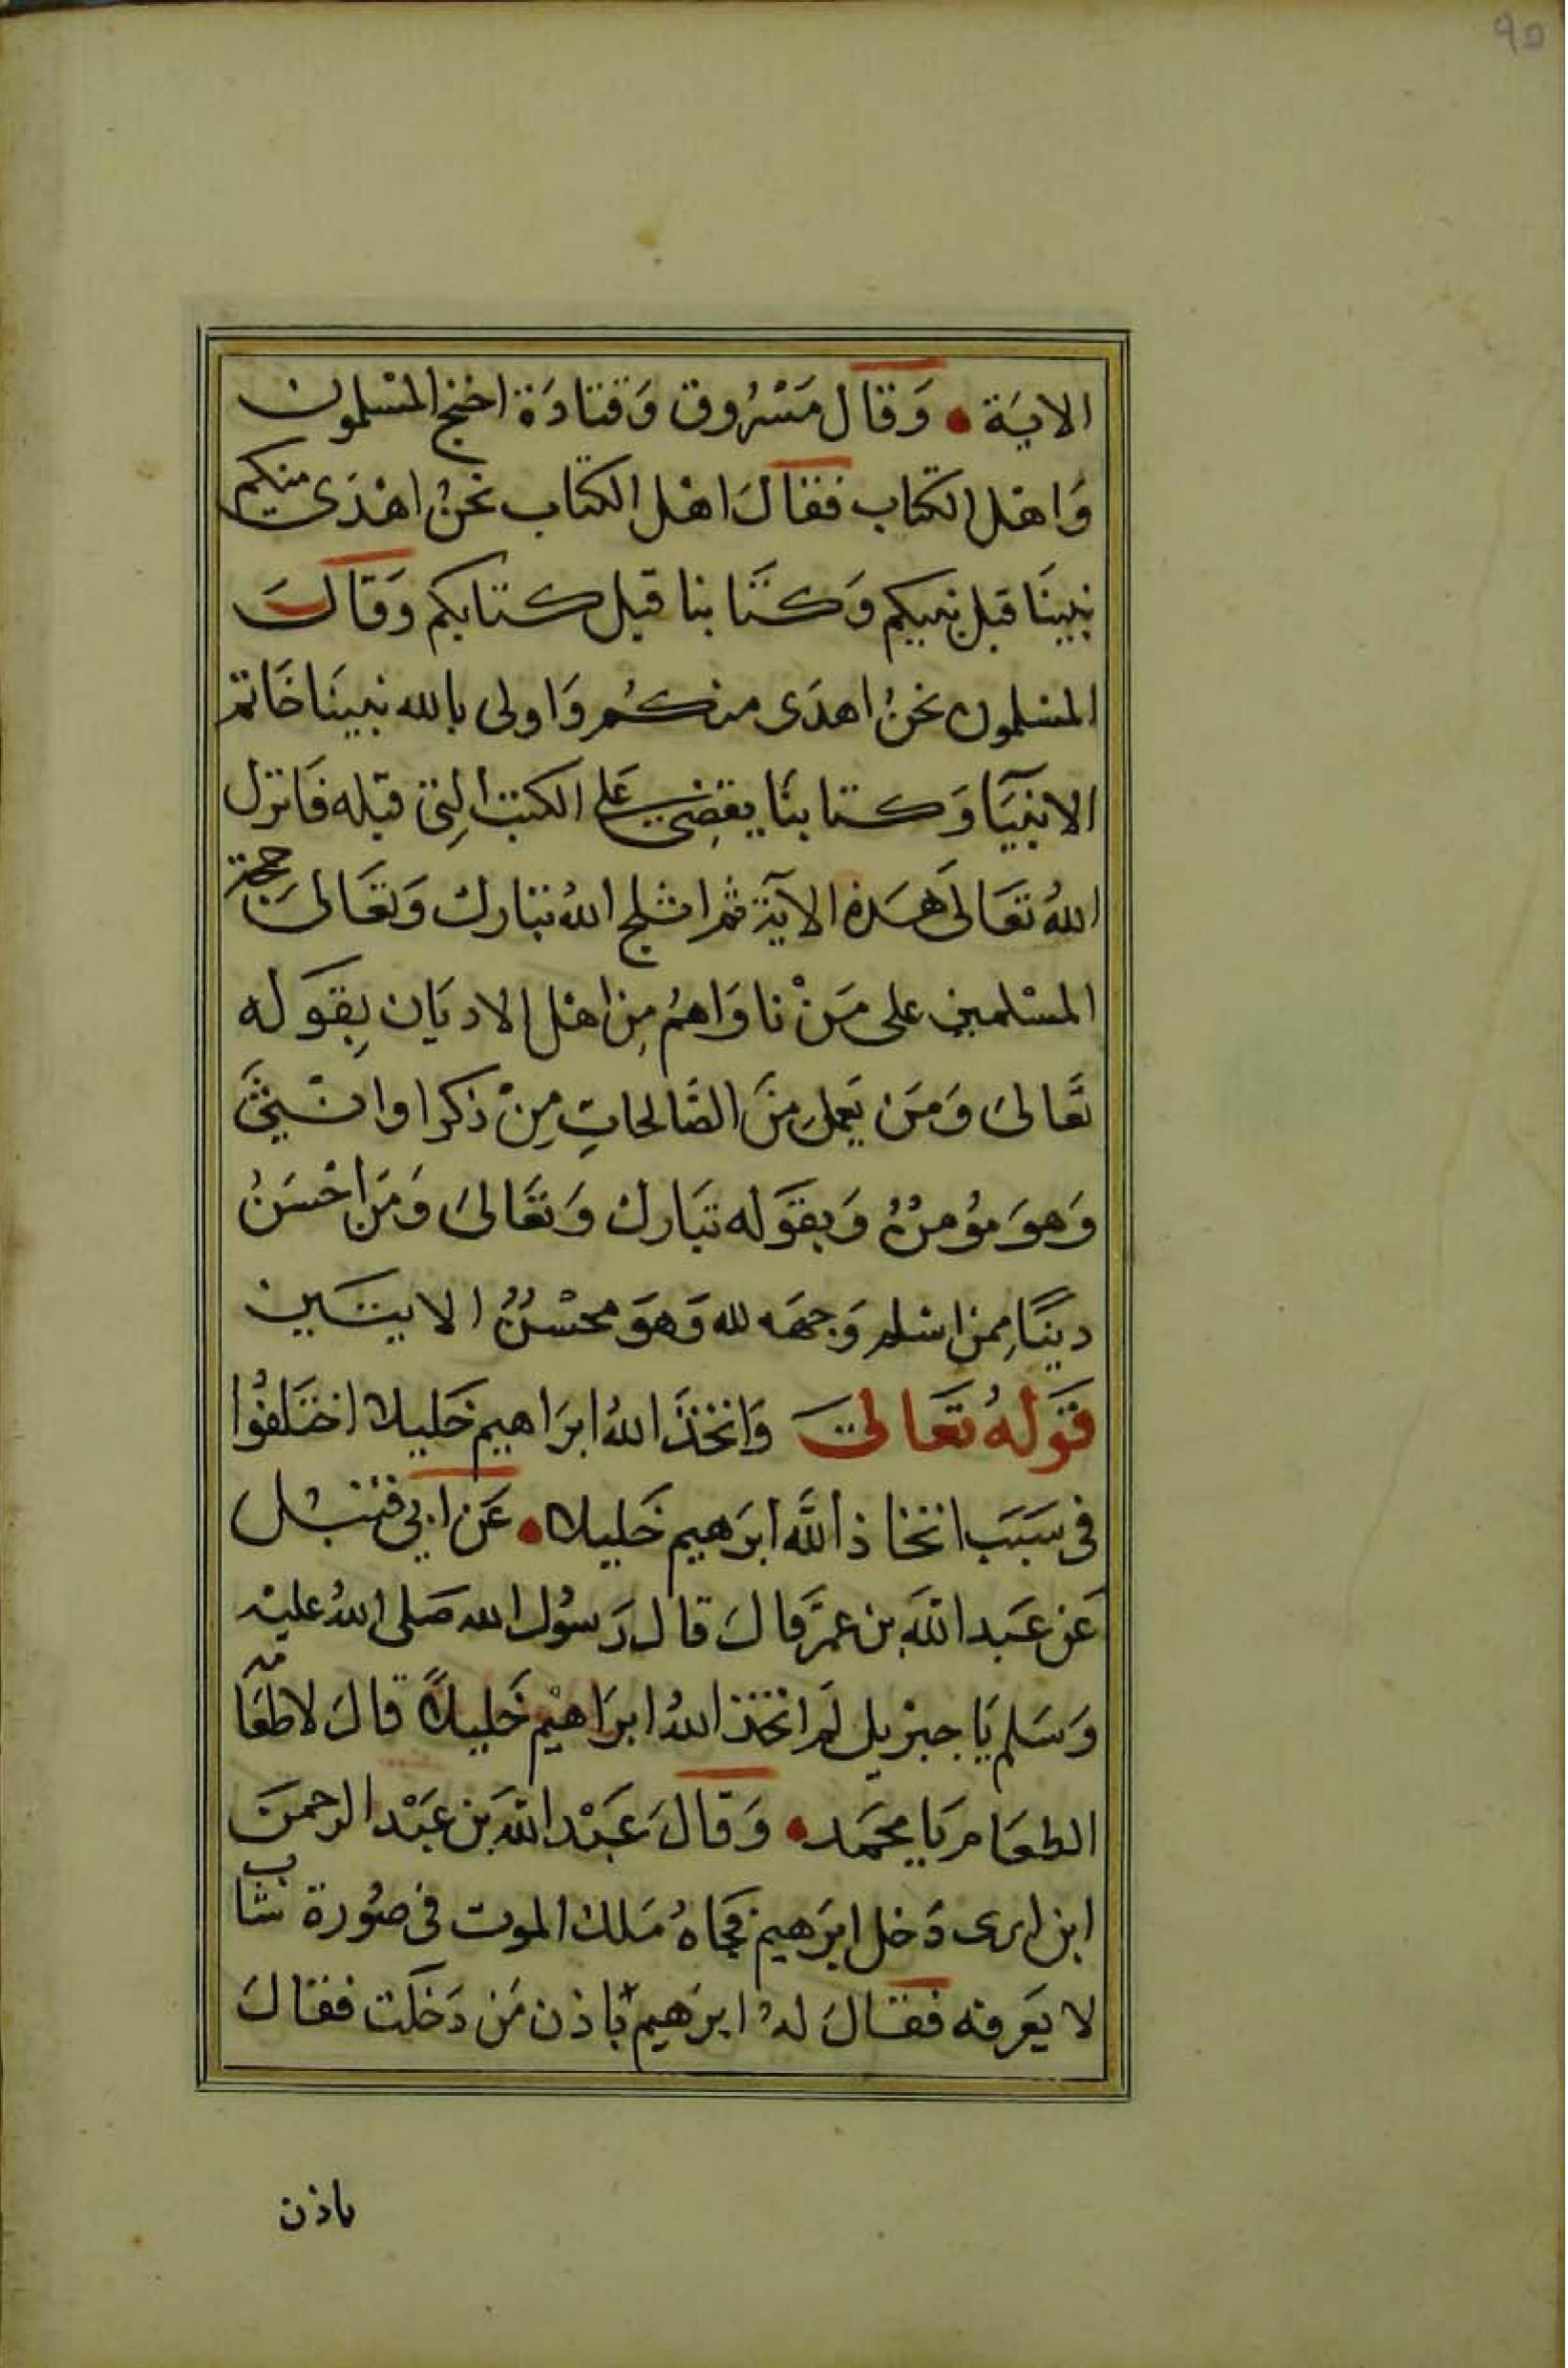 ٩٥
الاية • وَقال مَسْرُوق وَقتادَة احتج المسْلمون
وَاهْل الكتاب فقالَ اهْل الكتاب نحنُ اهْدَى منكم
نبينَا قبل نبيكم وَكتَابنا قبل كتابكم وَقالَ
المسْلمون نحنُ اهدَى منكُم وَاولى بالله نبينَا خَاتم
الانبيَا وَكتابنَا يقضِي عَلى الكتب التِى قبْله فَانزل
اللهُ تعَالىَ هَذه الآية ثم افلج اللهُ تبَارك وَتعَالىَ حجة
المسْلمين على مَنْ ناوَاهمُ مِن اهْل الاديَان بِقوَله
تعَالىَ وَمَن يَعمل مِنَ الصَّالحاتِ مِنْ ذكر او انثىَ
وَهوَ موُمنُ وَبقوَله تبَارك وَتعَالىَ وَمَن احْسَنُ
دينًا مِمن اسْلم وَجهَه لله وَهوَ محْسنُ الايتَين
قوَلهُ تعَالىَ وَاتخذَ اللهُ ابرَاهيم خَليلا اختَلفوُا
فى سَبَب اتخاذ اللَّه ابرَهيم خَليلا • عَن ابي قبيل
عَن عَبد اللَّه بن عمَر قالَ قال رَسوُل الله صَلى اللهُ عليْه
وَسَلم يَا جبريل لمَ اتخذ اللهُ ابرَاهيْم خَليلاً قالَ لاطعَامه
الطعَام يَا محمَد • وَقالَ عَبْد اللَّه بَن عَبْد الرحمن
ابن ابرى دَخل ابرَهيم فجَاهُ مَلك الموت فى صوُرة شاب
لا يَعرفه فقالَ لهُ ابرَهيم باذن مَن دَخلت فقالَ
باذن